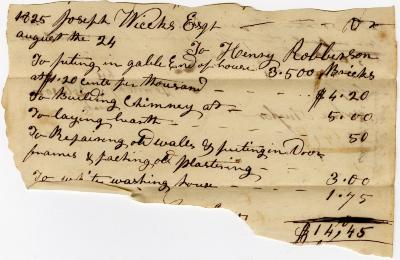 1825 Joseph Weeks Esqr Dr
august the 24 To Henry Robberson
To puting in gable End of house 3.500 Bricks
at $1.20 cents per thousand $4.20
To Building Chimney at 5.00
To laying hearth 50
To Repairing old walls & puting in Door
frames & patching old Plastering 3.00
To white washing house 1.75
$14,45